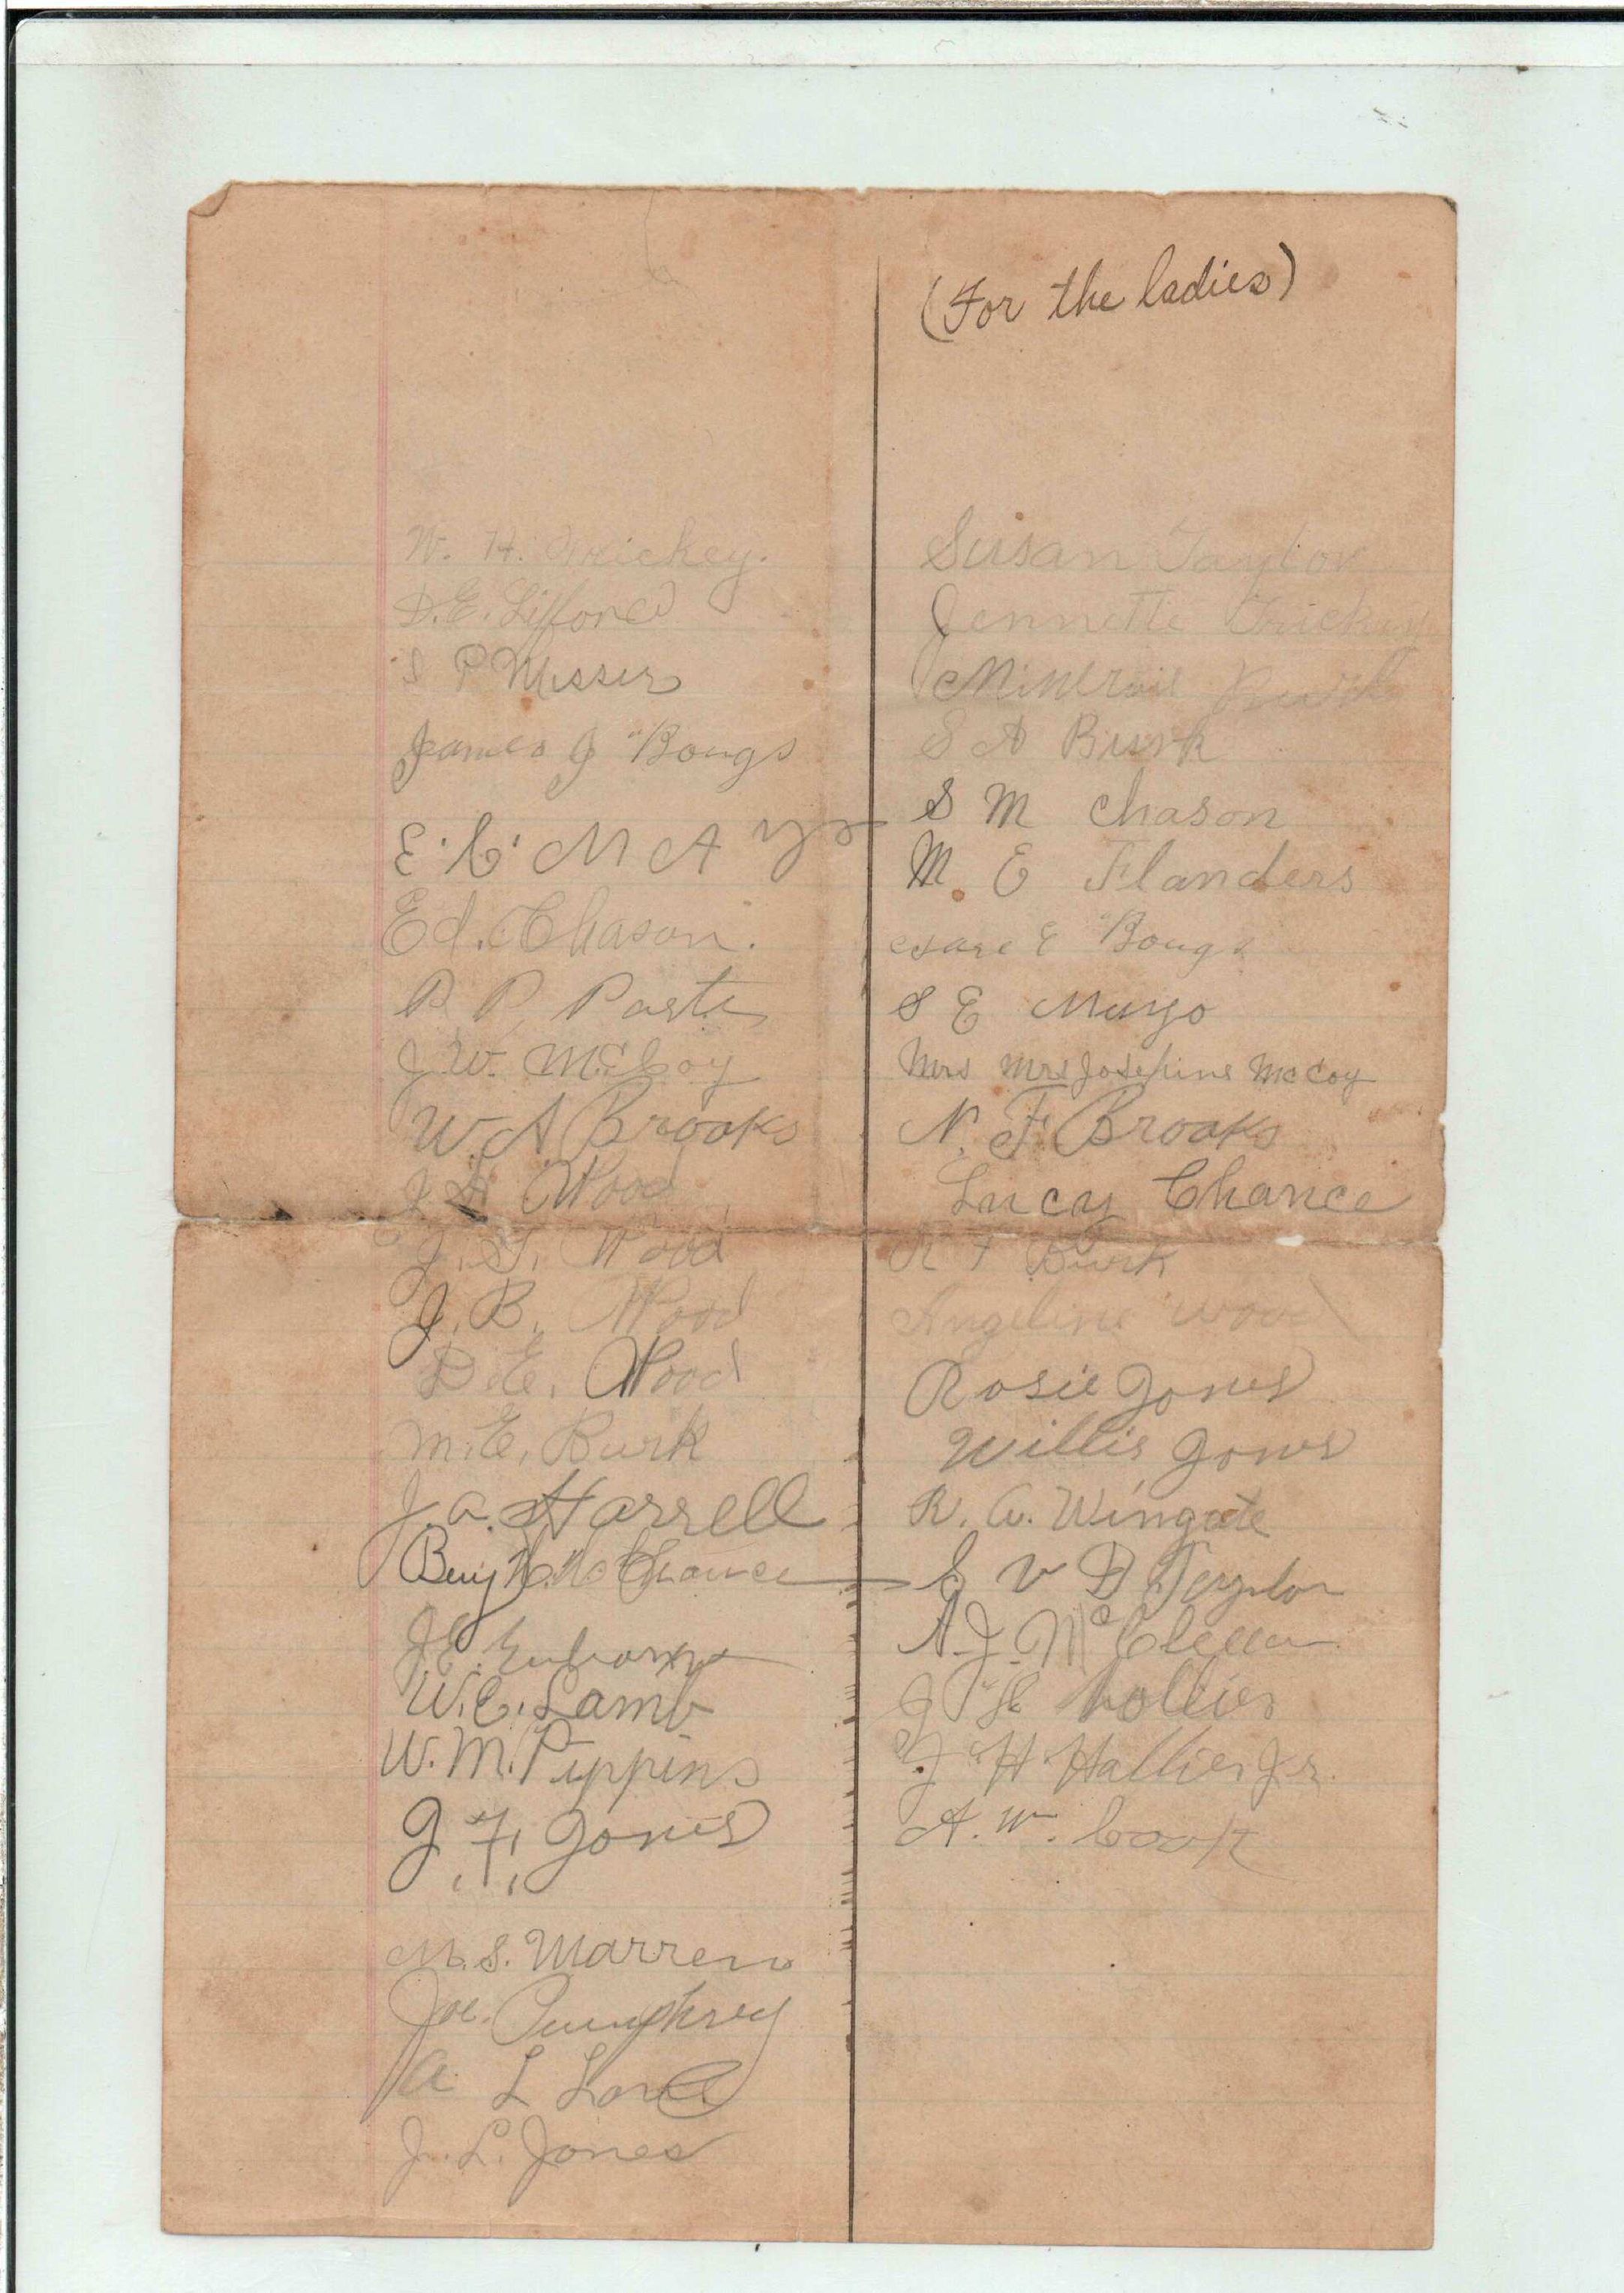 (For the ladies)
W. H. Trickey.
D. E. Lifford
S P Messer
James J Bougs
E. C. MAys
Ed. Chason.
P. P.
J. W. McCoy
W. A Brooks
J Wood
J. T. Wood
J. B. Wood
D. E. Wood
M. E. Burk
J. A. Harrell
Benj Chance
J. E.
W. C. Lamb
W. M. Pippins
J. F. Jones
M. S. Warren
Joe. Pumphrey
A L Lord
J. L. Jones
Susan Taylor
Jennette Trickey
Burk
S A Burk
S M Chason
M. E Flanders
E Bougs
S E Mayo
Mrs Mrs Josephine McCoy
N. F. Brooks
Lucy Chance
R F Burk
Angeline Wood
Rosie Jones
Willis Jones
R. A. Wingate
V D Taylor
A. J. McClellan
J H hollier
J H Hallier Jr.
A. W. Cook